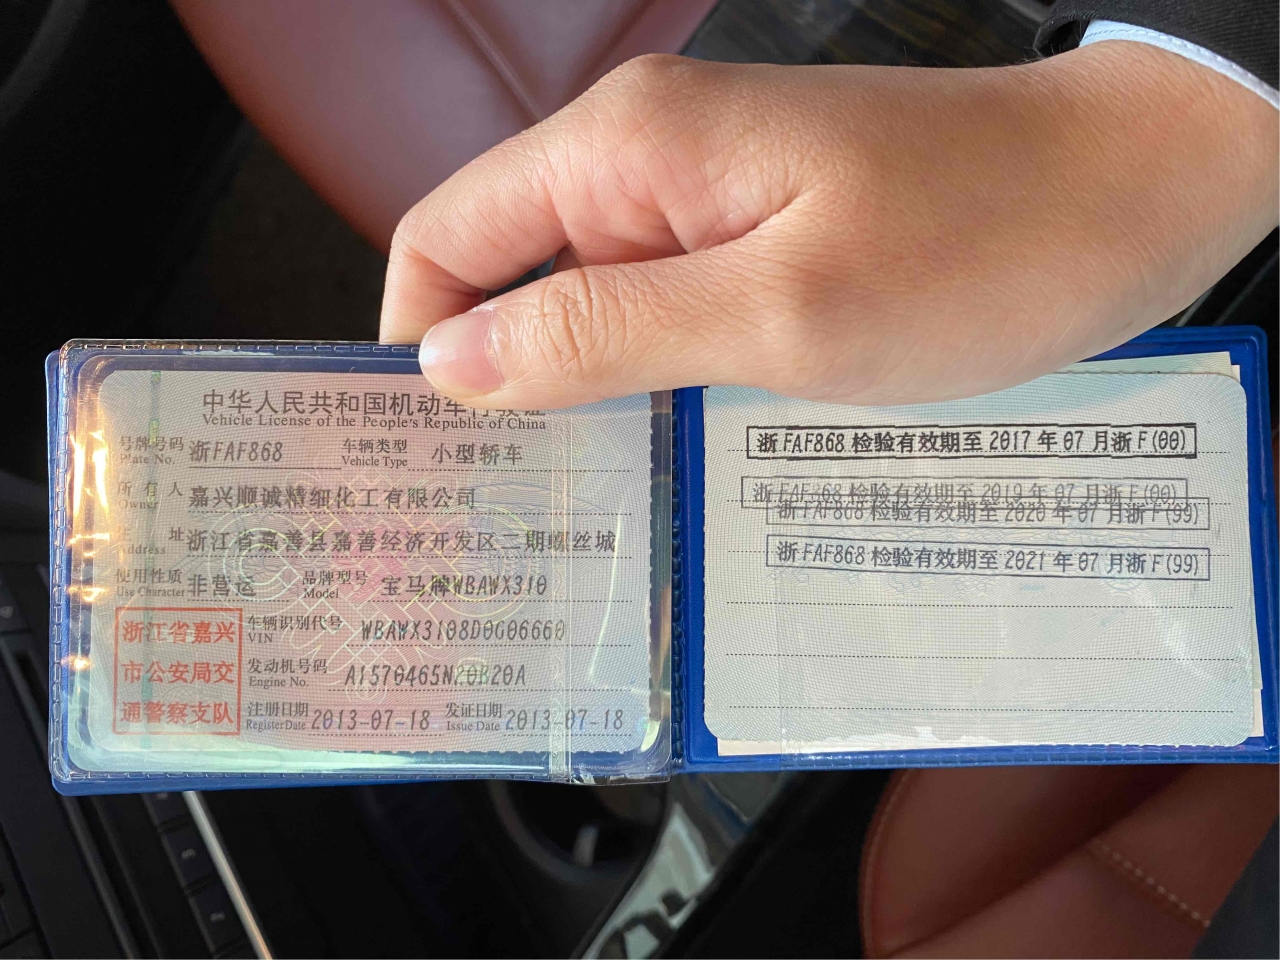 中华人民共和国机动车行驶证
Vehicle License of the People's Republic of China
号牌号码 浙FAF868 车辆类型 小型轿车
Plate No. Vehicle Type
所有人 嘉兴顺诚精细化工有限公司
Owner
址 浙江省嘉善县嘉善经济开发区二期螺丝城
Address
使用性质 非营运 品牌型号 宝马牌WBAWX310
Use Character Model
浙江省嘉兴
市公安局交
通警察支队
车辆识别代号 WBAWX3108D0G06660
VIN
发动机号码 A1570465N20B20A
Engine No.
注册日期 2013-07-18 发证日期 2013-07-18
Register Date Issue Date
浙FAF868检验有效期至2017年07月浙F(00)
浙FAF868检验有效期至2019年07月浙F(00)
浙FAF868检验有效期至2020年07月浙F(99)
浙FAF868检验有效期至2021年07月浙F(99)